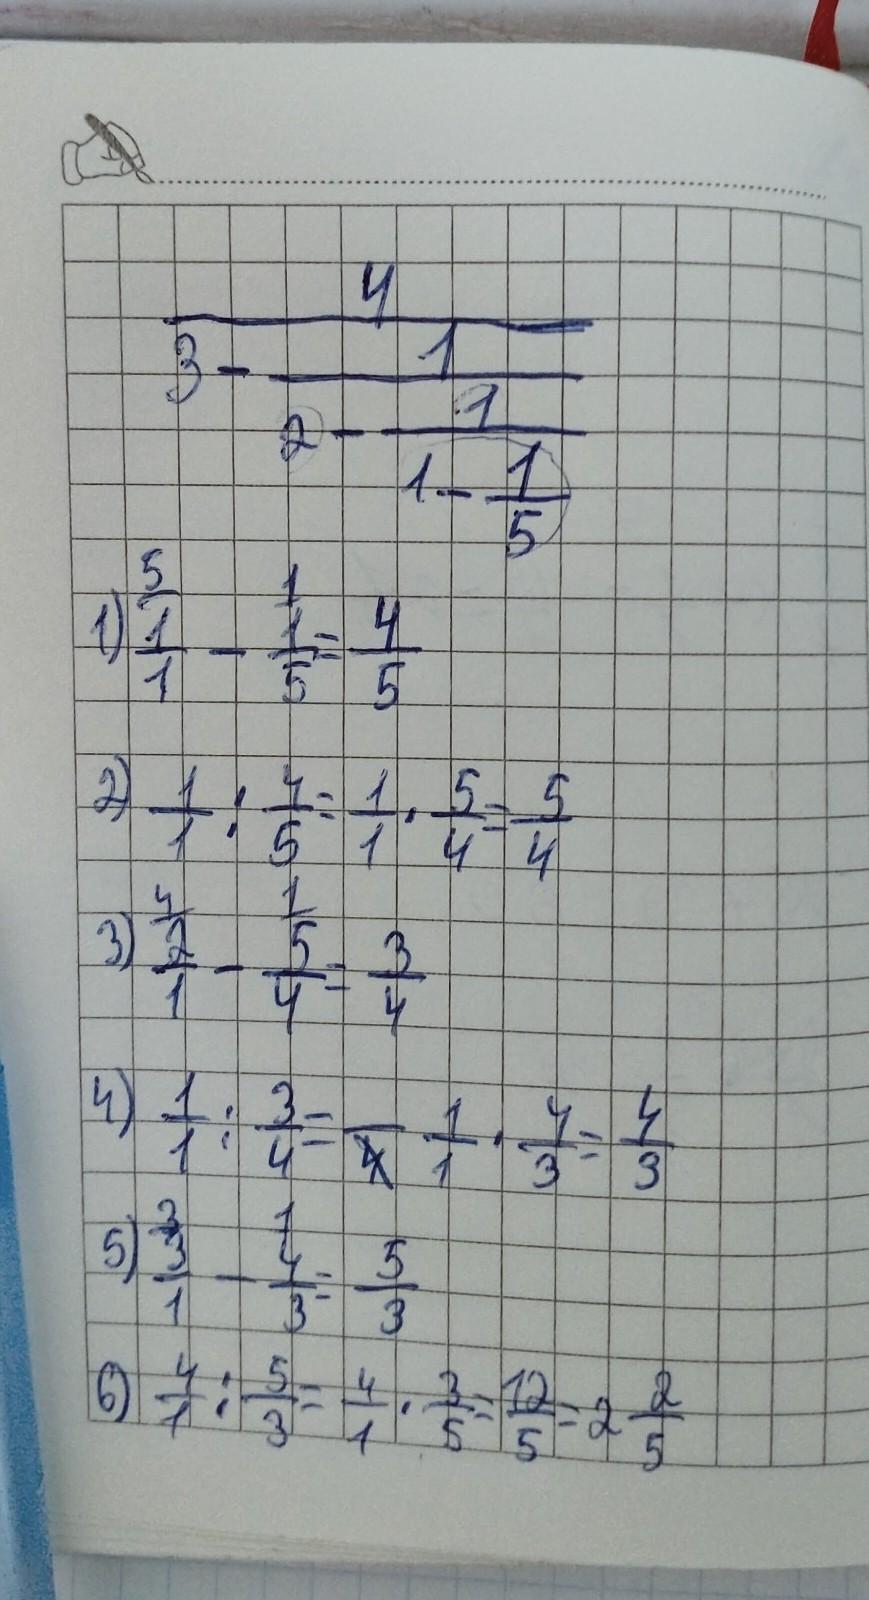 4
3 - 1
2 - 1
1 - 1/5
1) 5 1/1 - 1 1/5 = 4/5
2) 1/1 : 4/5 = 1/1 · 5/4 = 5/4
3) 4 2/1 - 1 5/4 = 3/4
4) 1/1 : 3/4 = 1/1 · 4/3 = 4/3
5) 3 3/1 - 1 4/3 = 5/3
6) 4/1 : 5/3 = 4/1 · 3/5 = 12/5 = 2 2/5